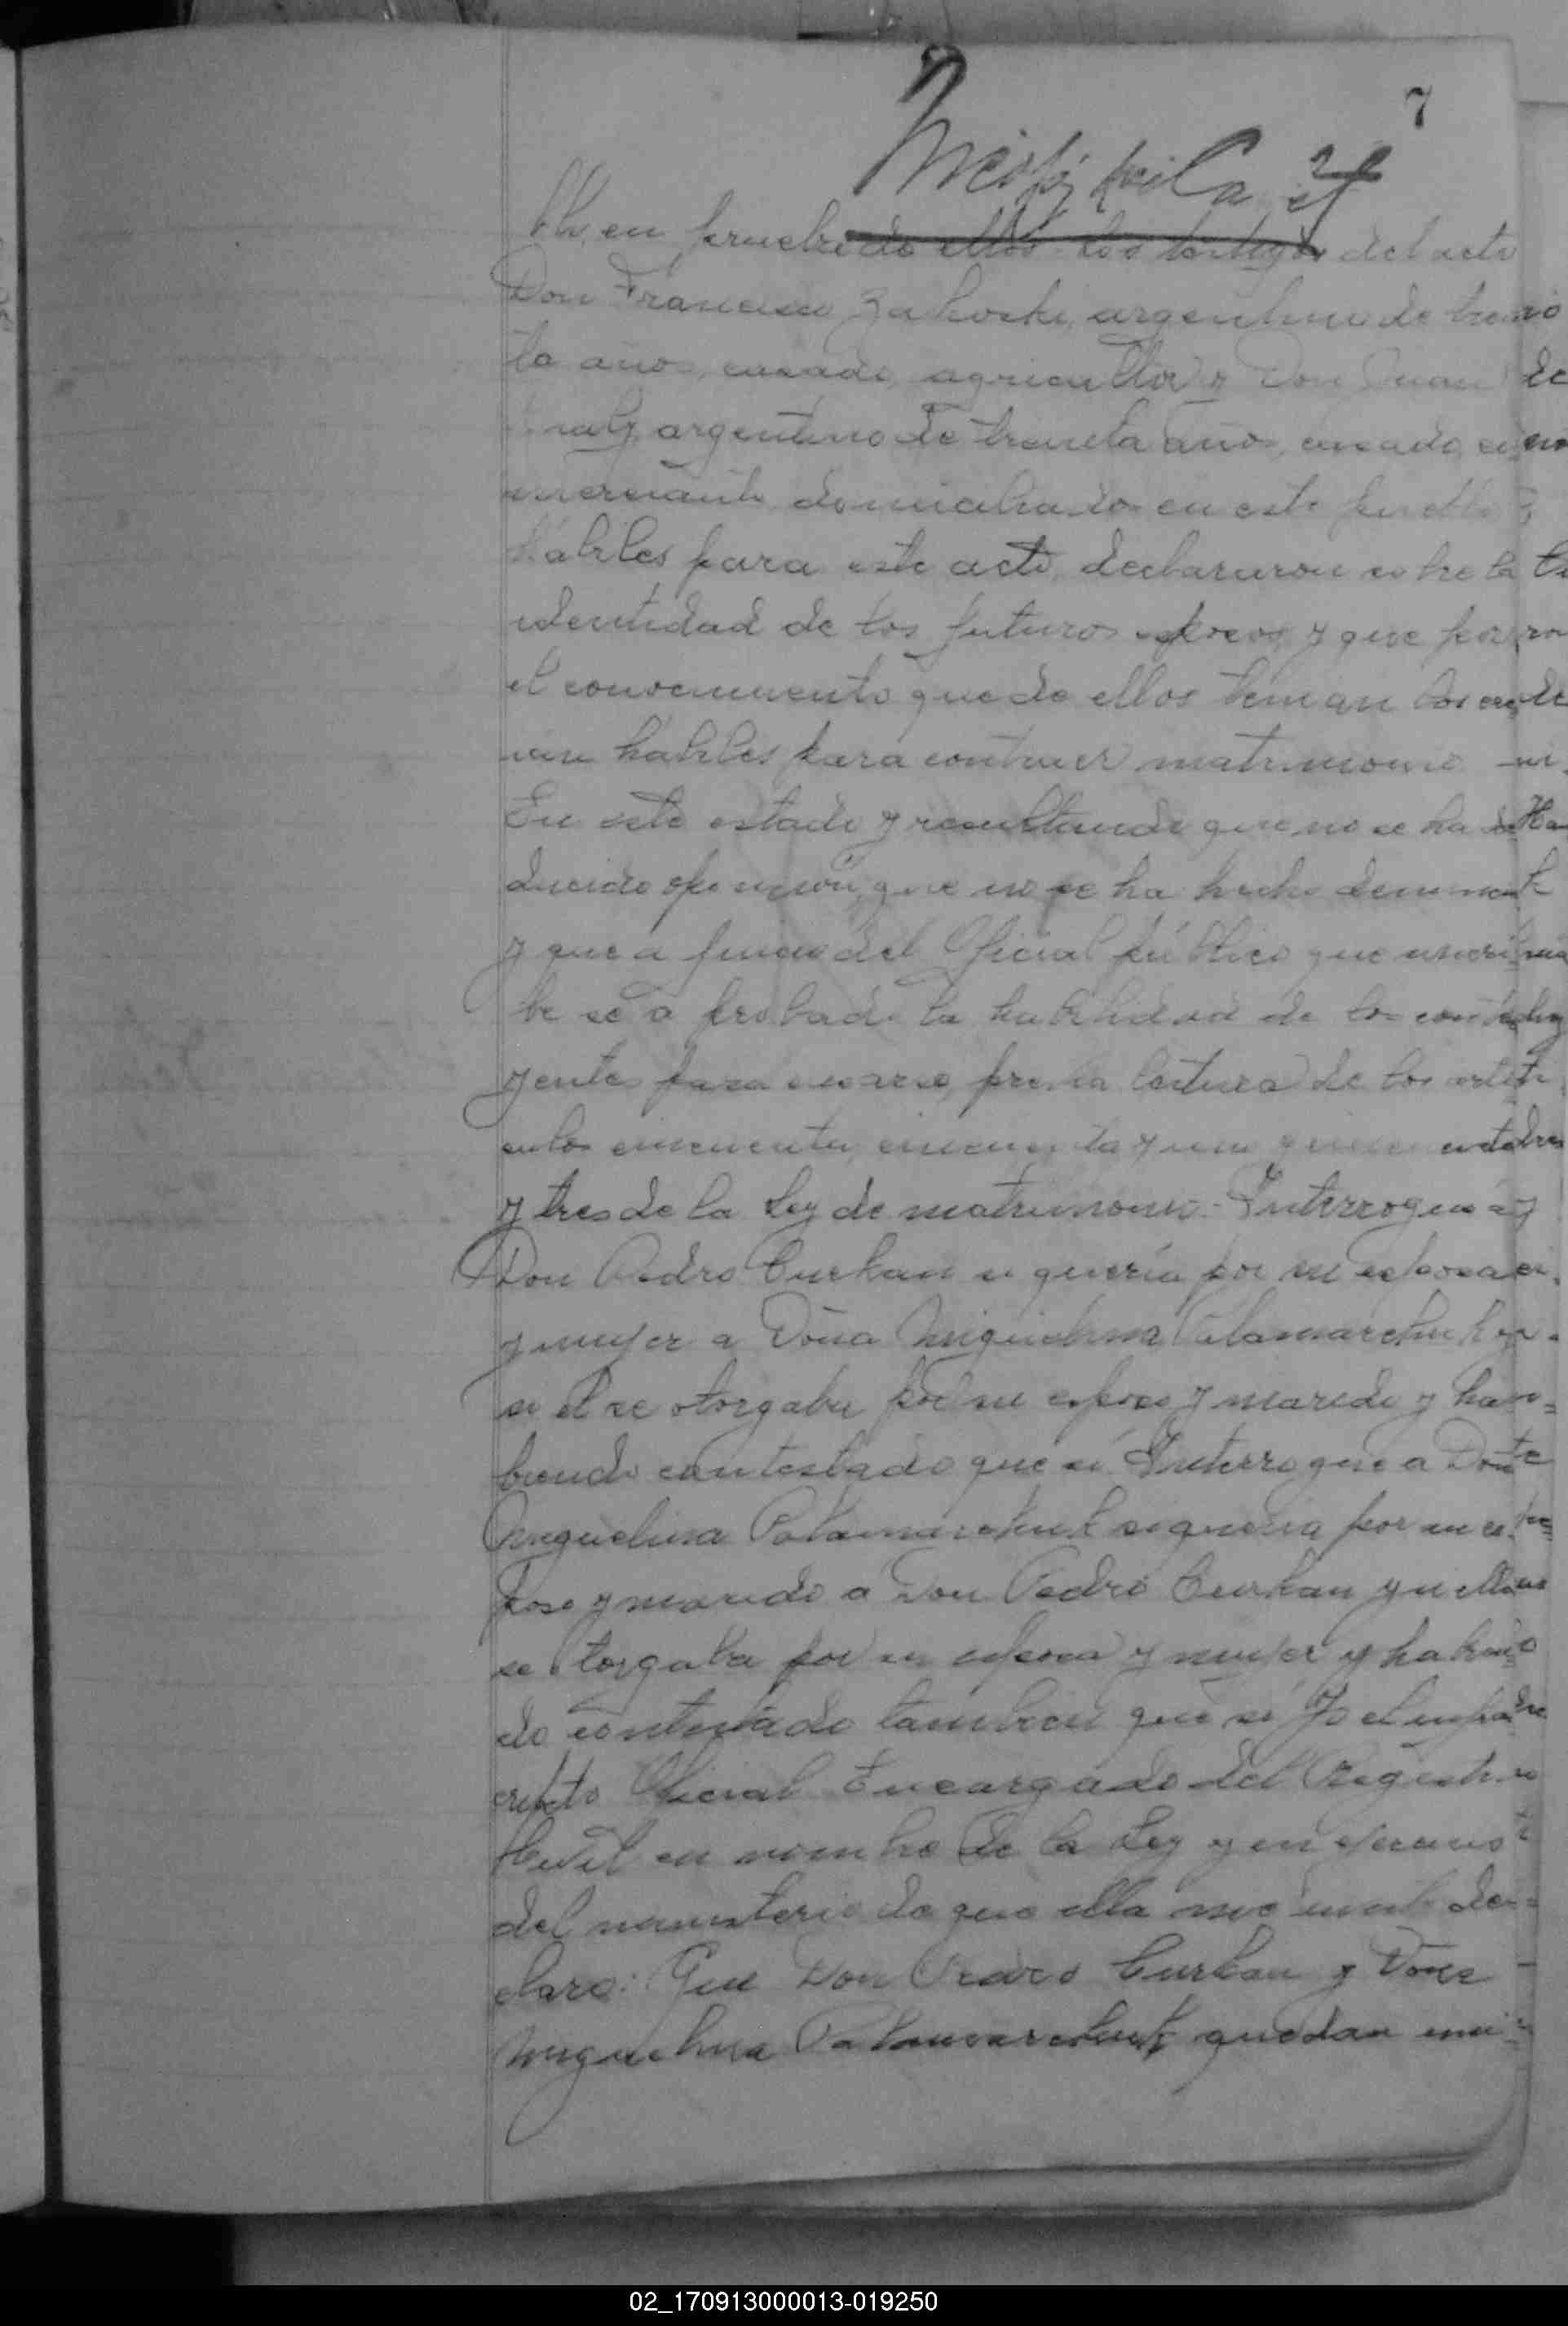 7
en prueba de ellos los testigos del acto
Don Francisco Zakoski, argentino de trein
ta años, casado, agricultor y Don Juan
argentino de treinta años, casado, co
merciante domiciliados en este pueblo
hábiles para este acto, declararon sobre la
identidad de los futuros esposos, y que por
el conocimiento que de ellos tenian los cre
ian hábiles para contraer matrimonio
En este estado y resultando que no se ha de
ducido oposicion, que no se ha hecho denuncia
y que a juicio del Oficial público que suscri
be se a probado la habilidad de los contra
yentes para casarse, previa lectura de los arti
culos cincuenta, cincuenta y uno y cincuenta
y tres de la Ley de matrimonio - Interrogué a
Don Pedro Curkan si queria por su esposa
y mujer a Doña Miguelina Palamarchuk y
si el se otorgaba por su esposo y marido y ha
biendo contestado que sí Interrogue a Doña
Miguelina Palamarchuk si queria por su es
poso y marido a Don Pedro Curkan y si ella
se otorgaba por su esposa y mujer y habien
do contestado tambien que sí Yo el infras
cripto Oficial Encargado del Registro
Civil en nombre de la Ley y en ejercicio
del ministerio de que ella me inviste de
claro: Que Don Pedro Curkan y Doña
Miguelina Palamarchuk quedan uni
02_170913000013-019250